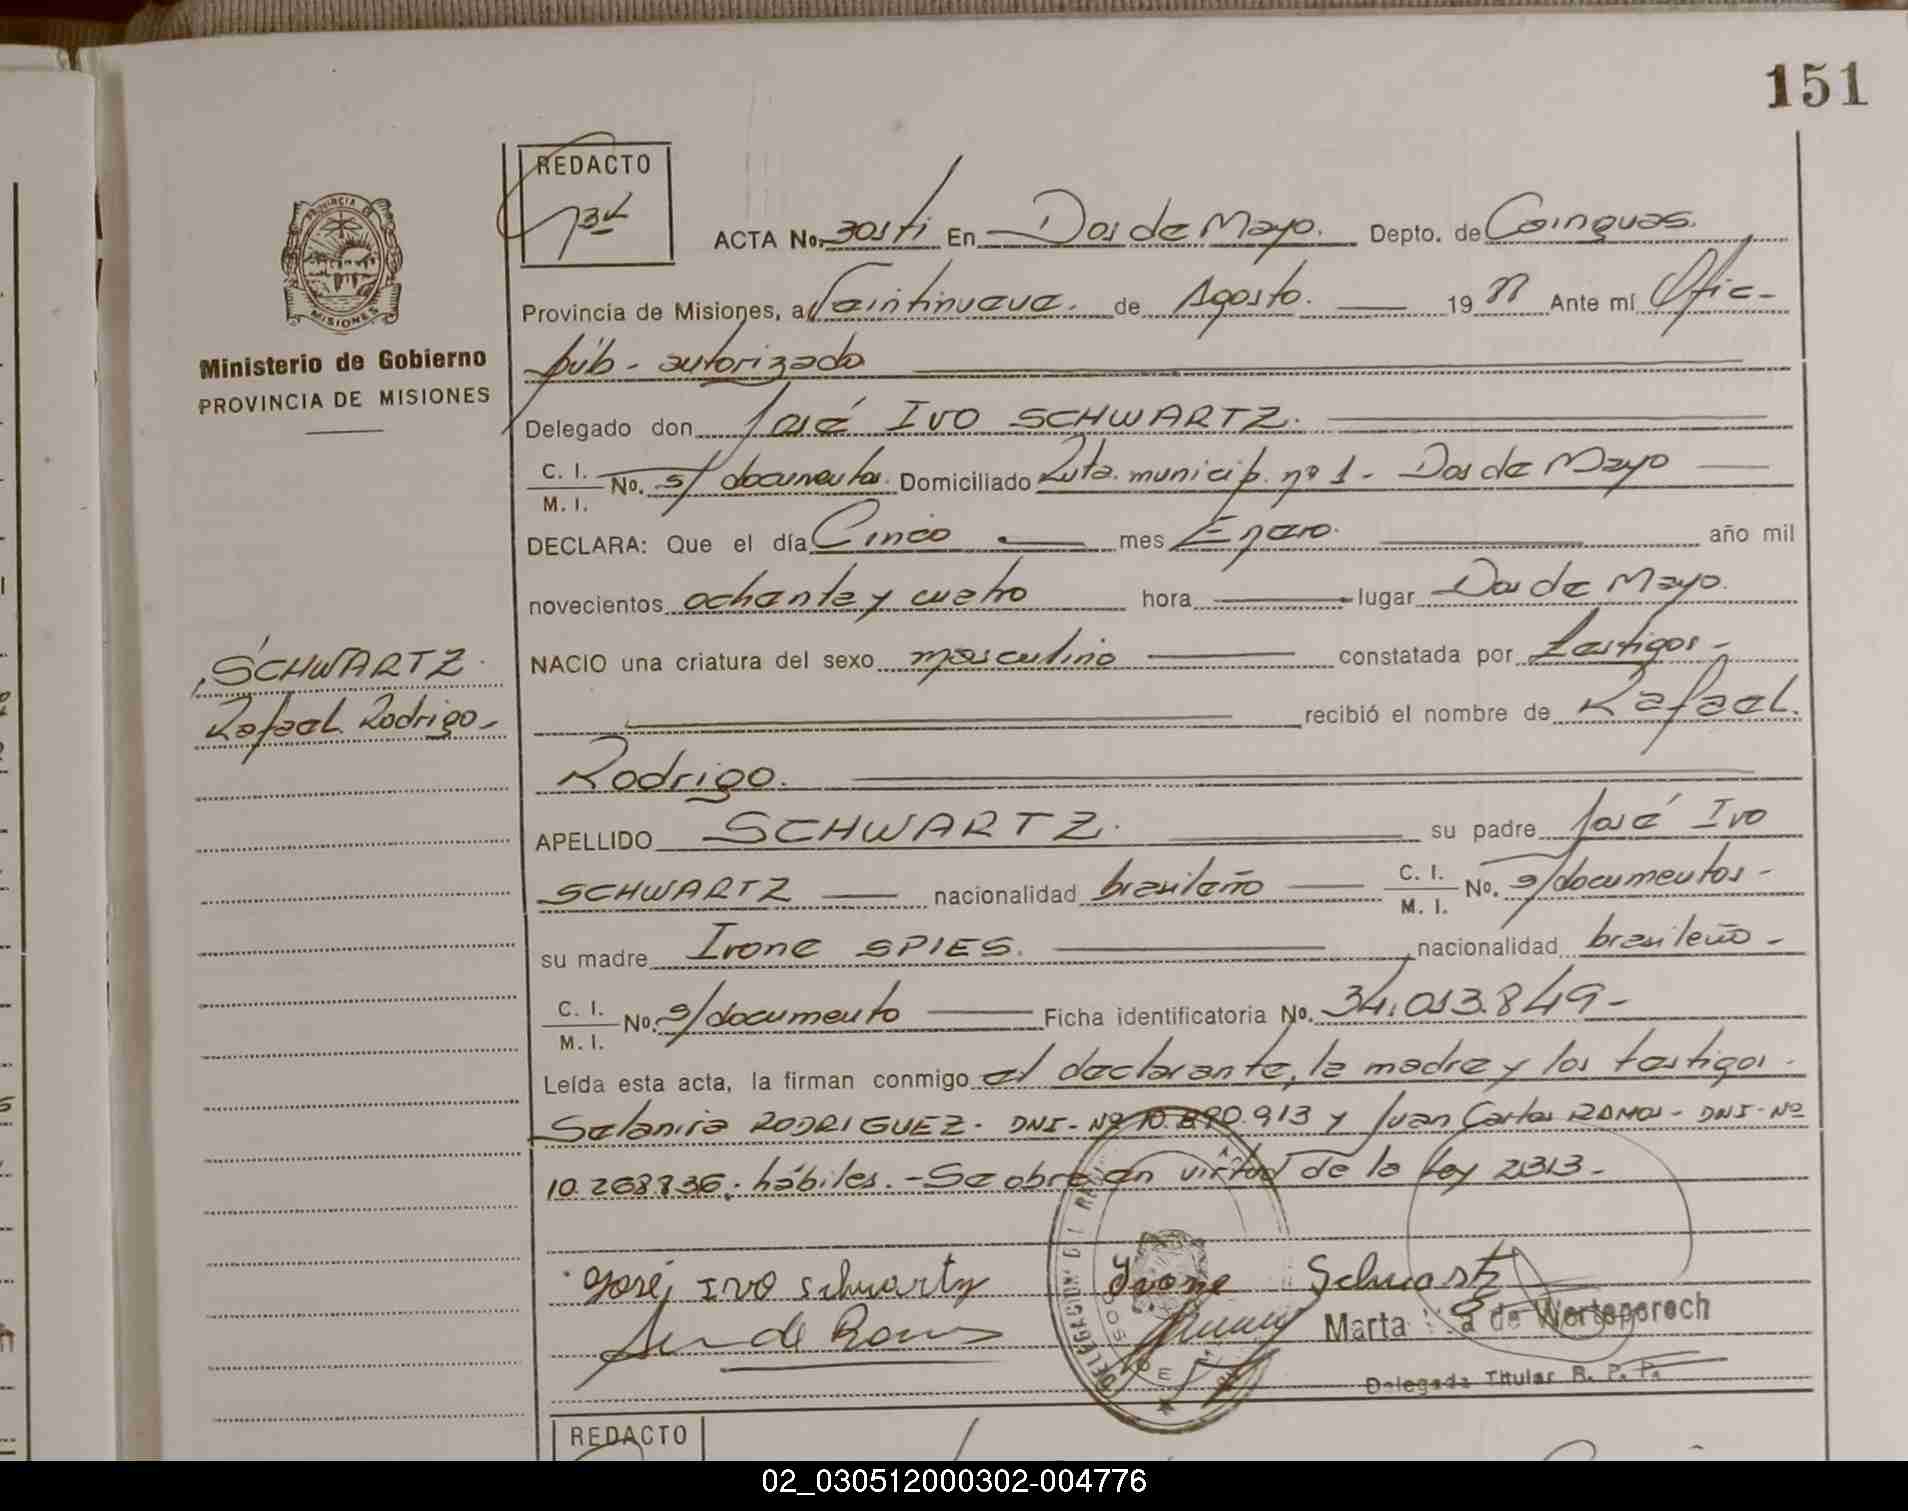 151
REDACTO
ACTA No. 301 En Dos de Mayo. Depto. de Cainguas.
PROVINCIA DE
MISIONES
Provincia de Misiones, a Veintinueve. de Agosto. 19 Ante mí Ofic-
Ministerio de Gobierno
PROVINCIA DE MISIONES
púb - autorizado
Delegado don José IVO SCHWARTZ.
C. I.
M. I. No. s/ documentos. Domiciliado Ruta. municip. nº 1 - Dos de Mayo
DECLARA: Que el día Cinco mes Enero. año mil
novecientos ochenta y cuatro hora lugar Dos de Mayo.
NACIO una criatura del sexo masculino constatada por testigos -
SCHWARTZ.
Rafael Rodrigo -
recibió el nombre de Rafael.
Rodrigo.
APELLIDO SCHWARTZ. su padre José Ivo
SCHWARTZ nacionalidad brasileño C. I.
M. I. No. s/documentos -
su madre Ivone SPIES. nacionalidad brasileño -
C. I.
M. I. No. s/documento Ficha identificatoria No. 34.013.849-
Leída esta acta, la firman conmigo el declarante, la madre y los testigos -
RODRIGUEZ - DNI - Nº 10.890.913 y Juan Carlos RAMOS - DNI - Nº
10.268.836; hábiles. - Se obre en virtud de la ley 2313 -
José IVO Schwartz Ivone Schwartz
Marta de
Delegada Titular R. P. P.
DELEGACION DEL
REDACTO
02_030512000302-004776